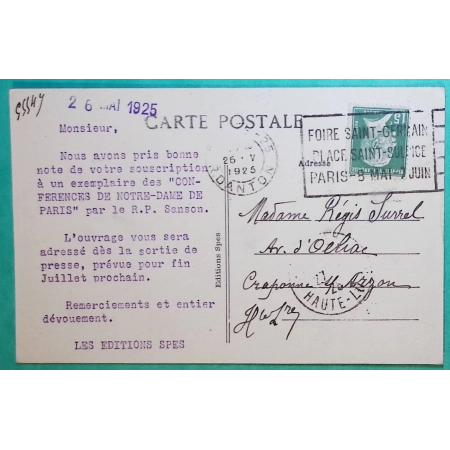 95547
2 6 MAI 1925
CARTE POSTALE
Monsieur,
Nous avons pris bonne
note de votre souscription
à un exemplaire des "CON-
FERENCES DE NOTRE-DAME DE
PARIS" par le R.P. Sanson.
L'ouvrage vous sera
adressé dès la sortie de
presse, prévue pour fin
Juillet prochain.
Remerciements et entier
dévouement.
LES EDITIONS SPES
Editions Spes
25 - V
1925
DANTON
FOIRE SAINT-GERMAIN
PLACE SAINT-SULPICE
PARIS-8 MAI JUIN
15
Adresse
Madame Régis Surrel
Av. d'
Craponne s/ Arzon
Hte Lre
HAUTE-L